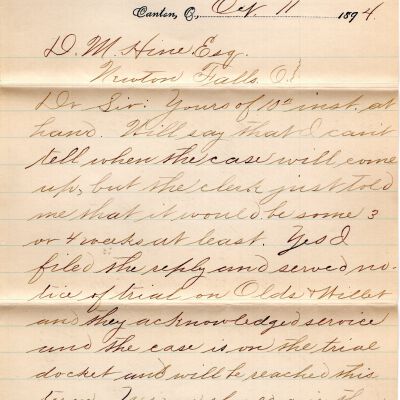 Canton, O., Oct. 11 1894.
D. M. Hine Esq.
Newton Falls, O.
Dr Sir: Yours of 10th inst. at
hand. Will say that I can't
tell when the case will come
up, but the clerk just told
me that it would be some 3
or 4 weeks at least. Yes I
filed the reply and served no-
tice of trial on Olds & Willet
and they acknowledged service
and the case is on the trial
docket and will be reached this